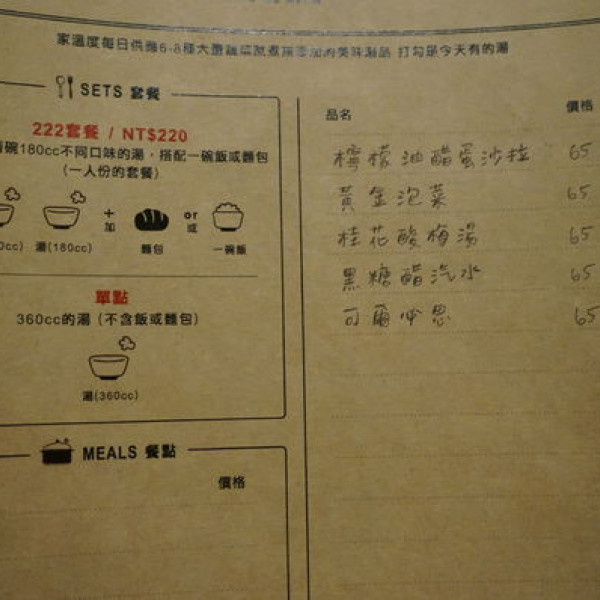 家溫度每日供應6-8種大廚蔬菜熬煮 美味湯品 打勾是今天有的湯
SETS 套餐
222套餐 / NT$220
碗180cc不同口味的湯，搭配一碗飯或麵包
(一人份的套餐)
+ or
加 或
0cc) 湯(180cc) 麵包 一碗飯
單點
360cc的湯 (不含飯或麵包)
湯(360cc)
MEALS 餐點
價格
品名 價格
檸檬油醋蛋沙拉 65
黃金泡菜 65
桂花酸梅湯 65
黑糖醋汽水 65
可爾必思 65